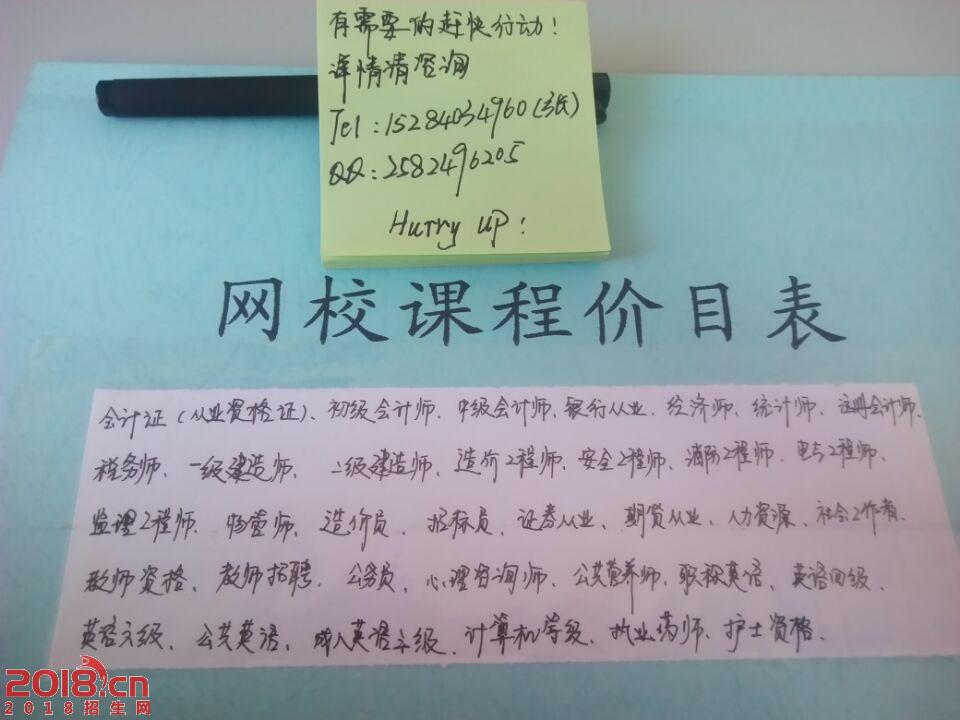 有需要的赶快行动！
详情请咨询
Tel：15284034960(张氏)
QQ：2582496205
Hurry up！
网校课程价目表
会计证（从业资格证）、初级会计师、中级会计师、银行从业、经济师、统计师、注册会计师、
税务师、一级建造师、二级建造师、造价工程师、安全工程师、消防工程师、电气工程师、
监理工程师、物管师、造价员、招标员、证券从业、期货从业、人力资源、社会工作者、
教师资格、教师招聘、公务员、心理咨询师、公共营养师、职称英语、英语四级、
英语六级、公共英语、成人英语三级、计算机等级、执业药师、护士资格、
2018.cn
2018招生网